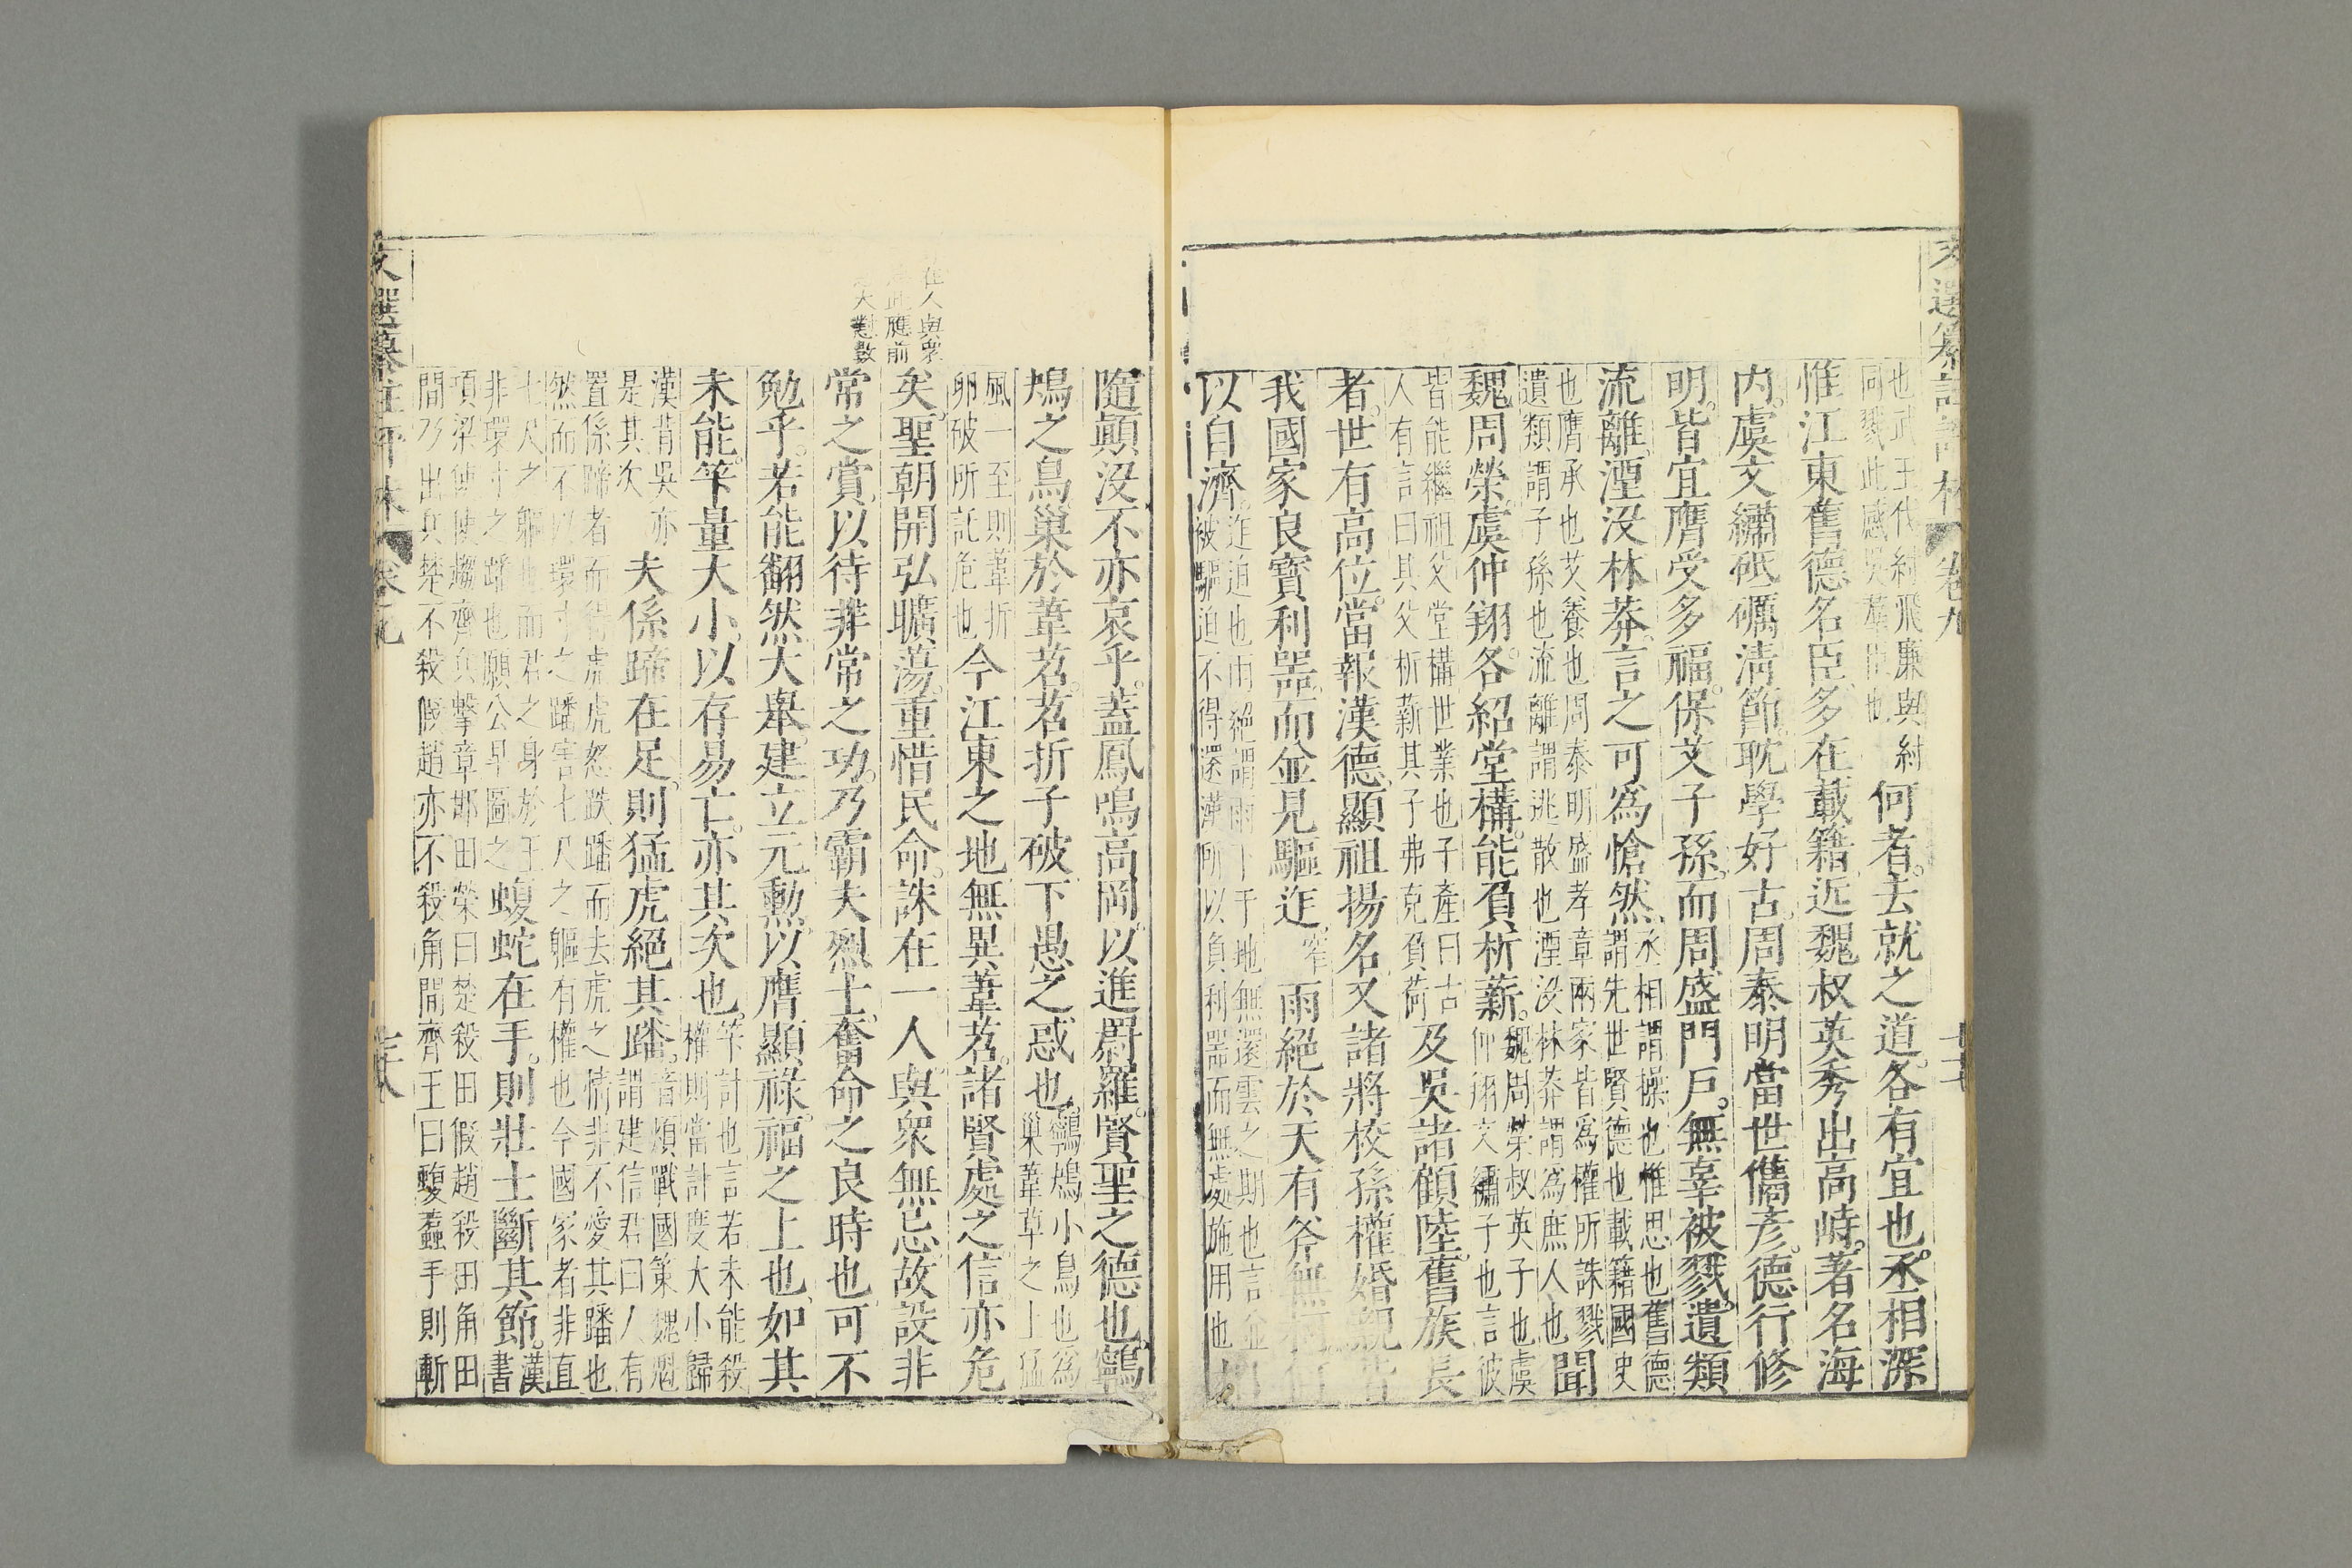 也武王伐紂飛廉與紂
同戮此感吳羣臣也
何者去就之道各有宜也丞相深
惟江東舊德名臣多在載籍近魏叔英秀出高峙著名海
内虞文繡砥礪清節耽學好古周泰明當世儁彥德行修
明皆宜膺受多福保乂子孫而周盛門戸無辜被戮遺類
流離湮没林莽言之可爲愴然
丞相謂操也惟思也舊德
謂先世賢德也載籍國史
也膺承也乂養也周泰明盛孝章兩家皆爲權所誅戮
遺類謂子孫也流離謂逃散也湮没林莽謂爲庶人也
聞
魏周榮虞仲翔各紹堂構能負析薪
魏周榮叔英子也虞
仲翔文繡子也言彼
皆能繼祖父堂構世業也子產曰古
人有言曰其父析薪其子弗克負荷
及吳諸顧陸舊族長
者世有高位當報漢德顯祖揚名又諸將校孫權婚親皆
我國家良寶利器而並見驅迮
窄
雨絕於天有斧無柯何
以自濟
迮迫也雨絕謂雨下于地無還雲之期也言並
被驅迫不得還漢所以負利器而無處施用也
文選纂註評林 卷九
隨顚没不亦哀乎蓋鳳鳴高岡以進罻羅賢聖之德也鸋
鴂之鳥巢於葦苕苕折子破下愚之惑也
鸋鴂小鳥也爲
巢葦草之上猛
風一至則葦折
卵破所託危也
今江東之地無異葦苕諸賢處之信亦危
矣聖朝開弘曠蕩重惜民命誅在一人與衆無忌故設非
常之賞以待非常之功乃霸夫烈士奮命之良時也可不
勉乎若能翻然大舉建立元勲以膺顯祿福之上也如其
未能筭量大小以存易亡亦其次也
筭計也言若未能殺
權則當計度大小歸
漢背吳亦
是其次
夫係蹄在足則猛虎絕其蹯
音煩戰國策魏魁
謂建信君曰人有
置係蹄者而得虎虎怒跌蹯而去虎之情非不愛其蹯也
然而不以環寸之蹯害七尺之軀有權也今國家者非直
七尺之軀也而君之身於王
非環寸之蹯也願公早圖之
蝮蛇在手則壯士斷其節
漢
書
項梁使使趨齊兵擊章邯田榮曰楚殺田假趙殺田角田
間乃出兵楚不殺假趙亦不殺角間齊王曰蝮蠚手則斬
在人與衆
應前
大懟數
文選纂註評林 卷九